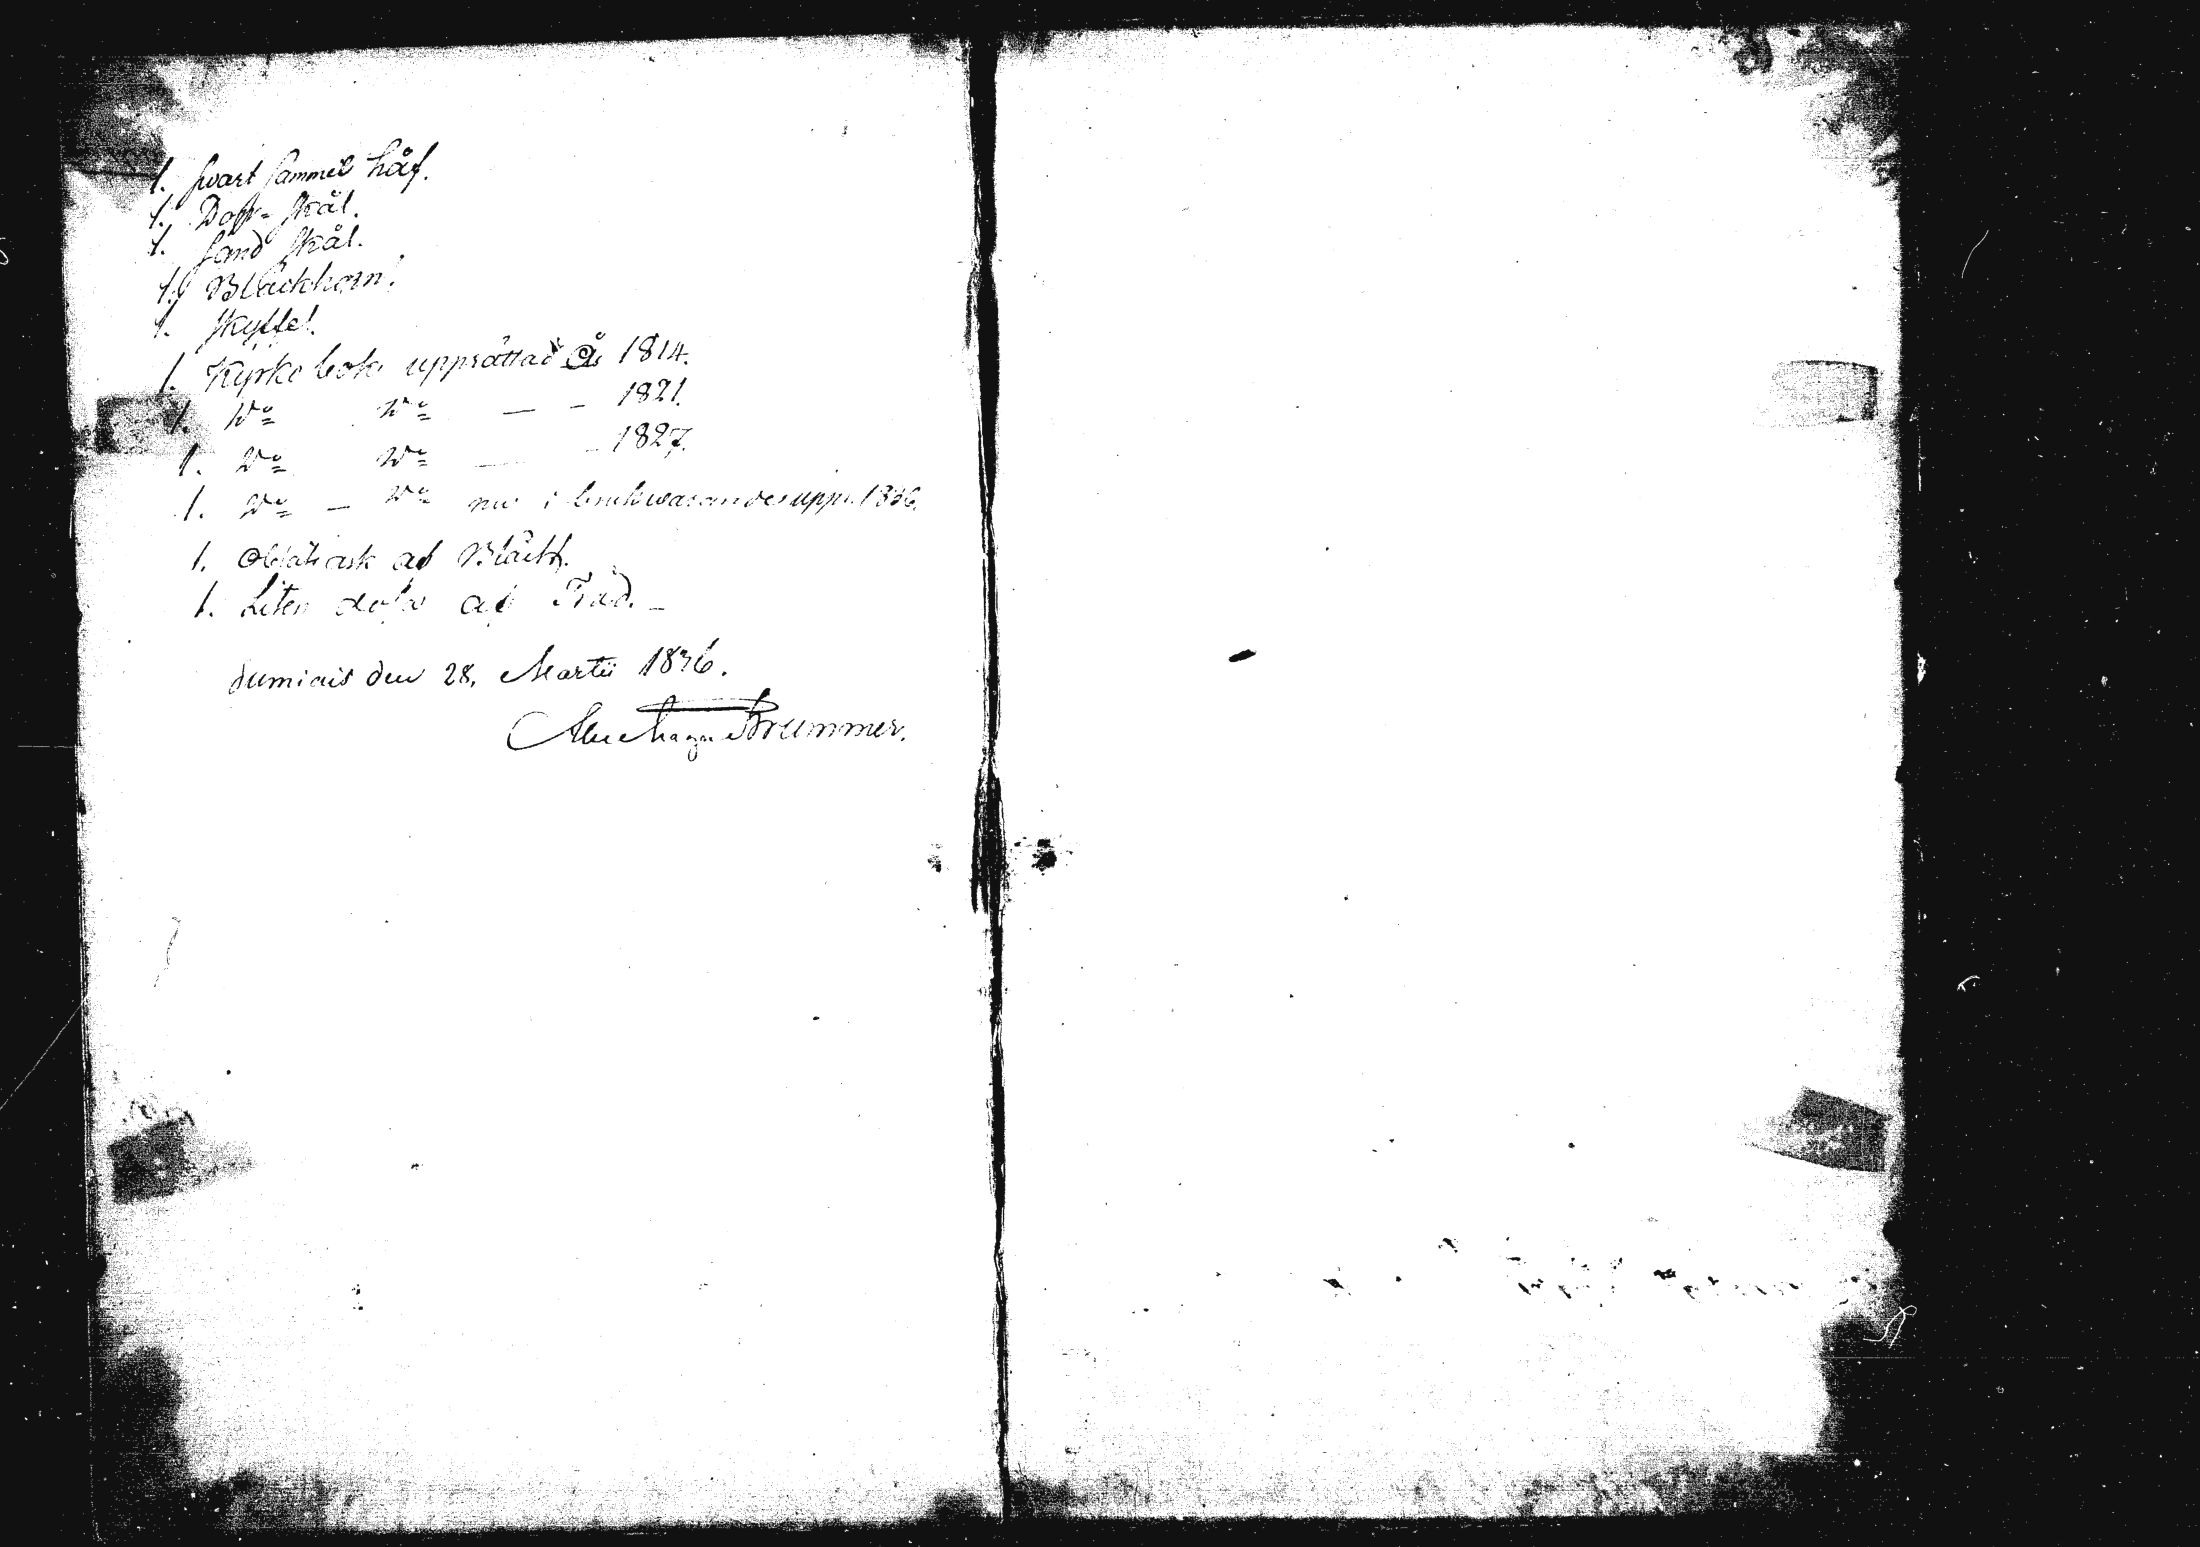 1. Swart Sammel håf.
1. Dop-skål.
1. Sand skål.
1. Bläckhorn.
1. Skyffel.
1. Kyrko bok upprättad År 1814.
1. Do Do — – 1821.
1. Do Do — – 1827.
1. Do — Do nu i brukwarande uppr. 1836.
1. Oblatask af Bläck.
1. Liten dosa af Träd. –
den 28. Martii 1836.
Brummer.